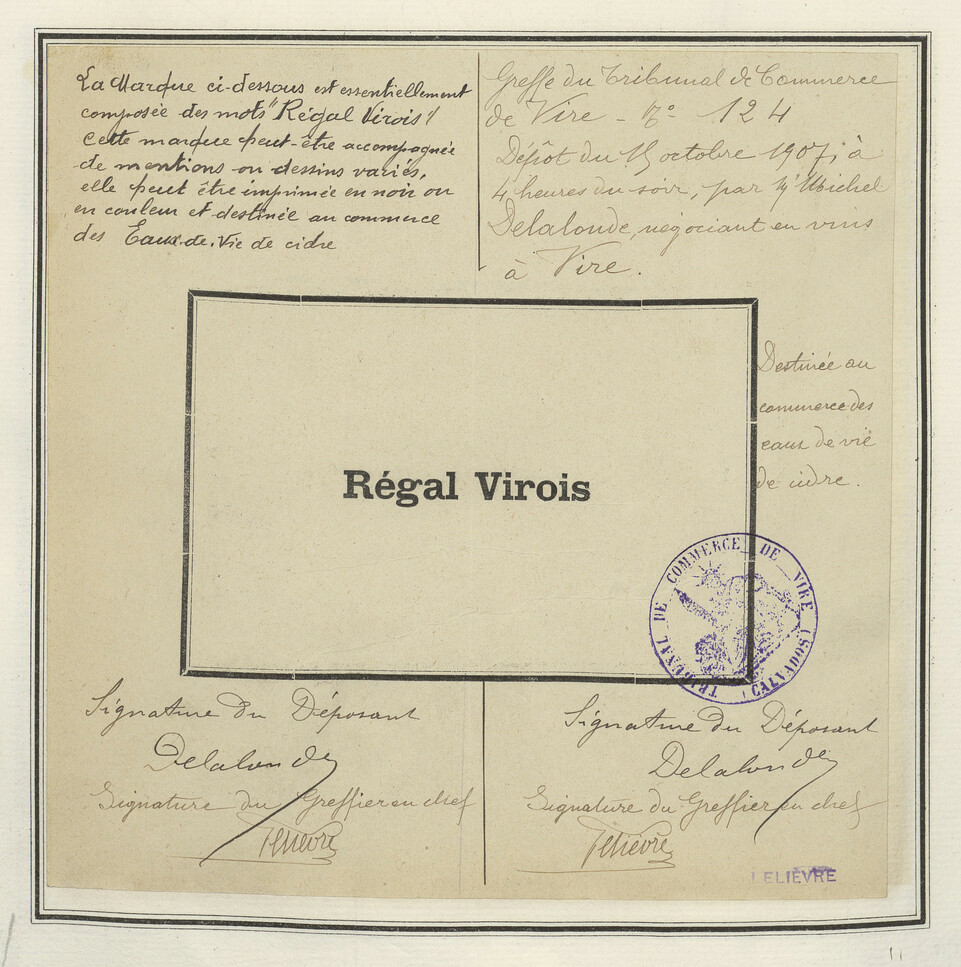 La Marque ci-dessous est essentiellement
composée des mots "Régal Virois"
Cette marque peut-être accompagnée
de mentions ou dessins variés,
elle peut être imprimée en noir ou
en couleur et destinée au commerce
des Eaux-de-Vie de cidre
Greffe du Tribunal de Commerce
de Vire - 124
Dépôt du 15 octobre 1907, à
4 heures du soir, par Mr Michel
Delalonde, négociant en vins
à Vire.
Régal Virois
Destinée au
commerce des
eaux de vie
de cidre.
TRIBUNAL DE COMMERCE DE VIRE (CALVADOS)
Signature du Déposant
Delalonde
Signature du Greffier en chef
Lelièvre
Signature du Déposant
Delalonde
Signature du Greffier en chef
Lelièvre
LELIÈVRE